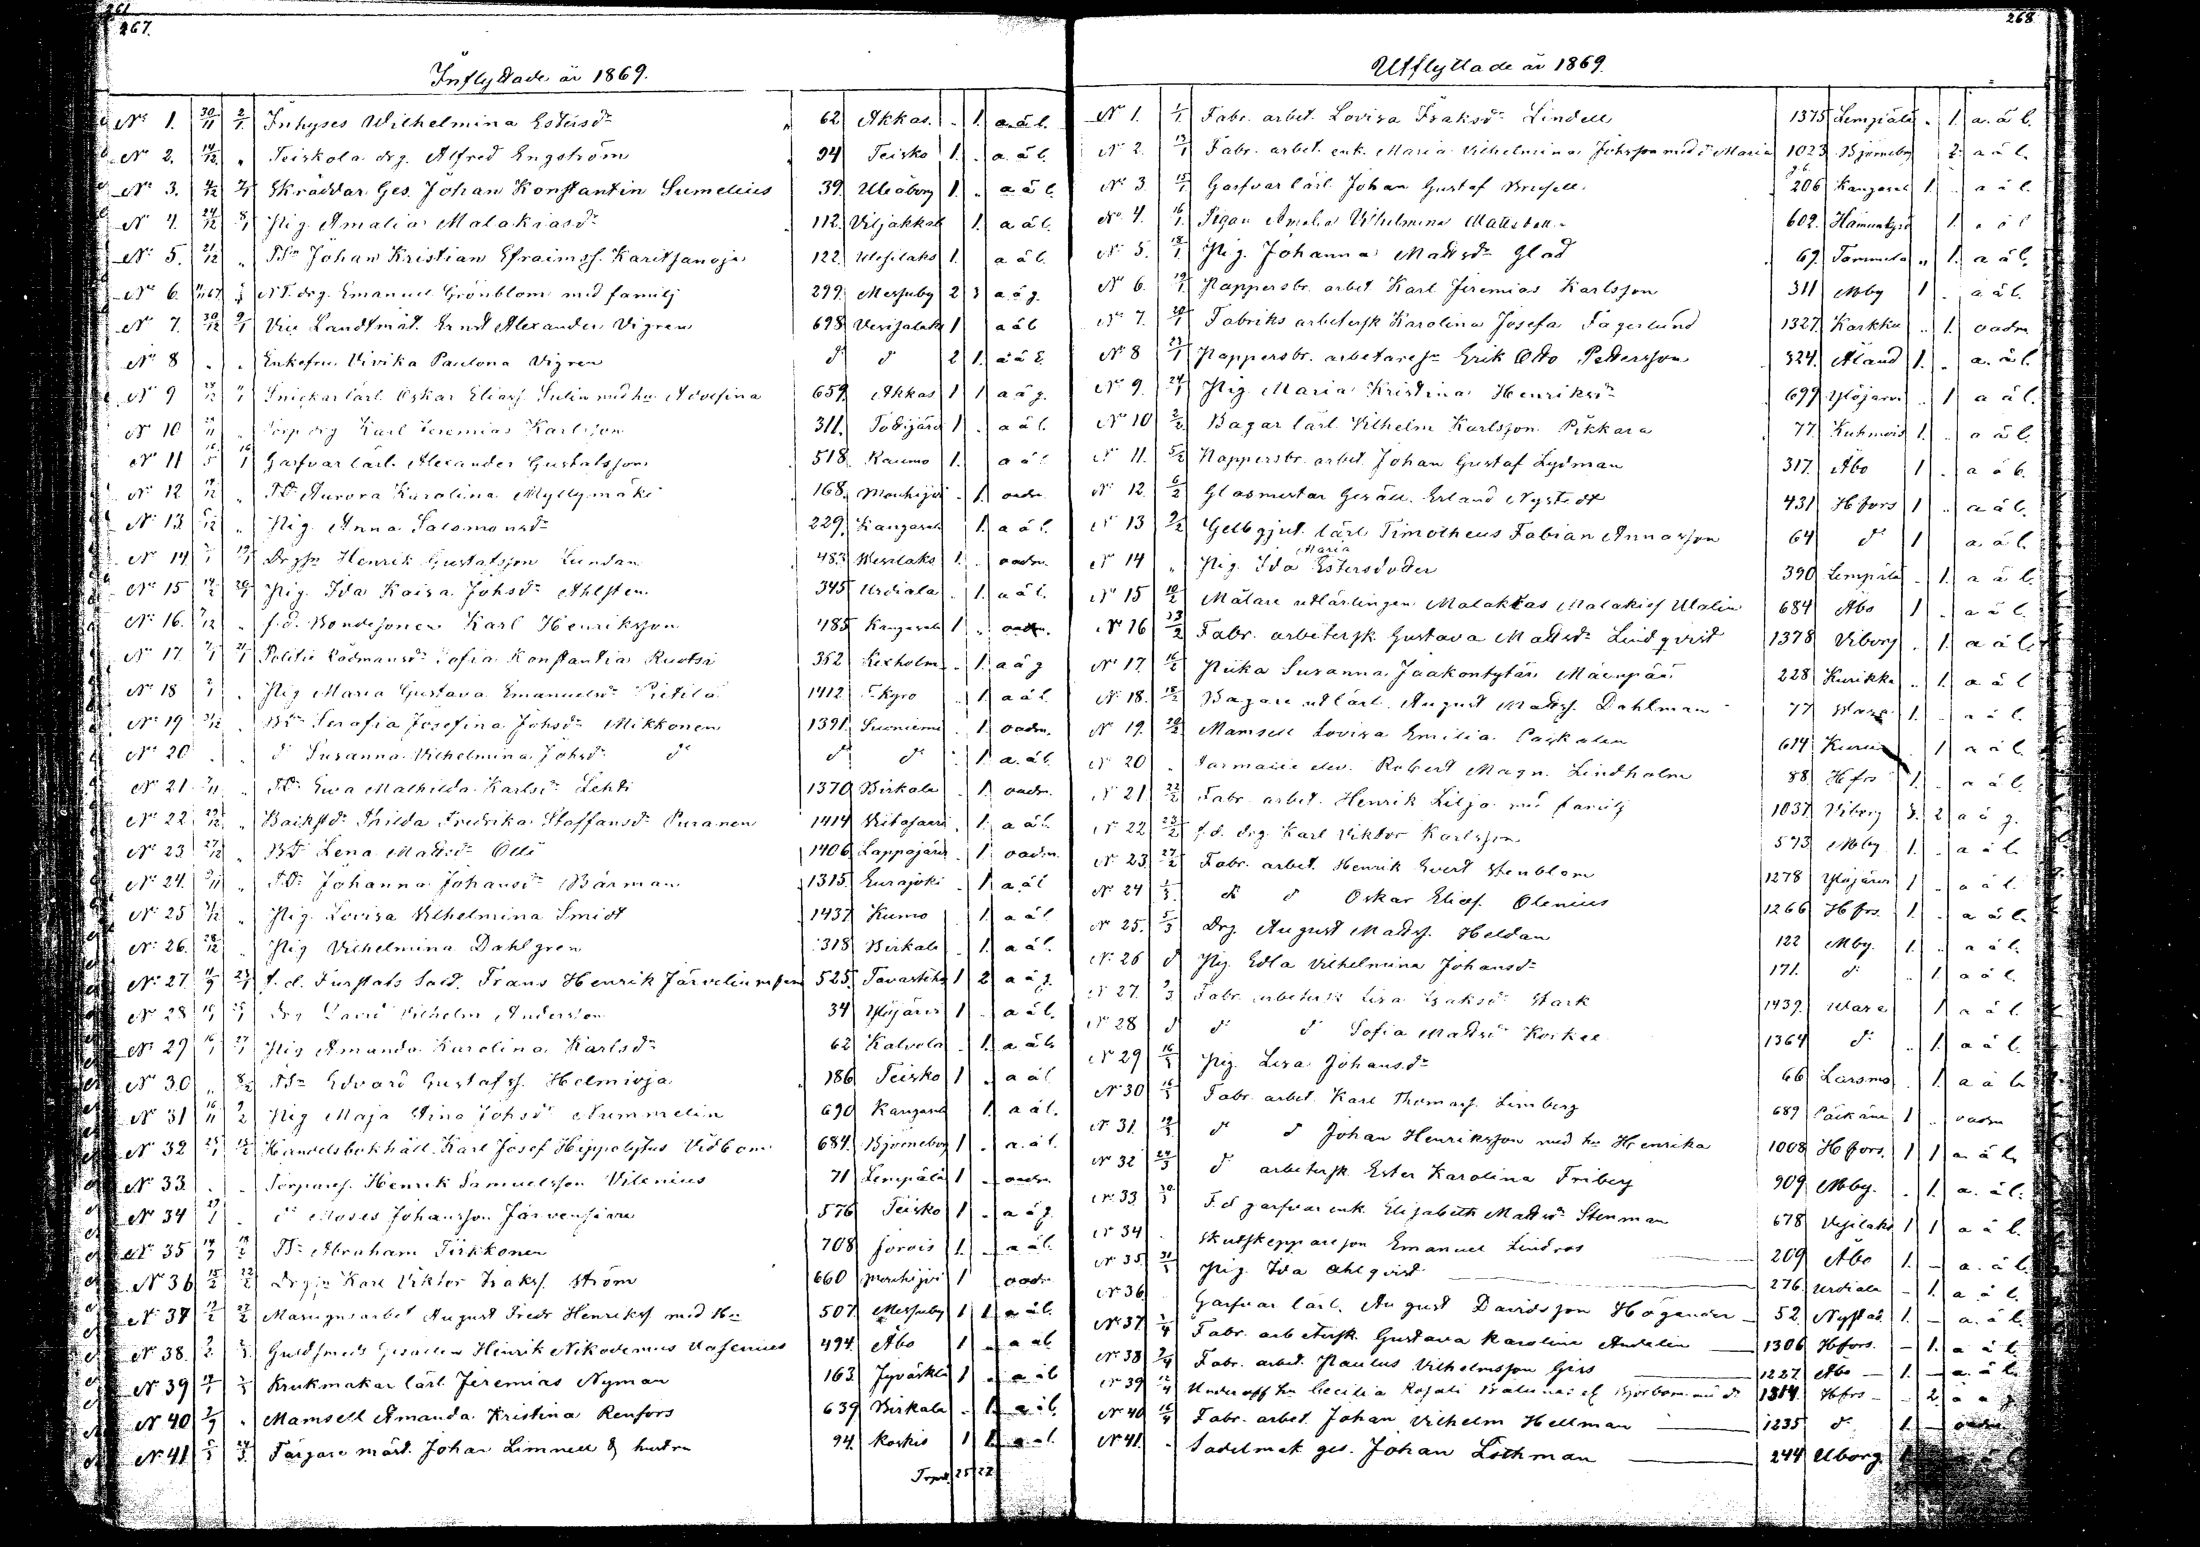 261
267.
Inflyttade år 1869.
No 1. 30/11 2/1. Inhyses Wilhelmina Estersdr 62 Akkas. 1. a.ä l.
No 2. 14/12 " Teiskola drg. Alfred Engström 94 Teisko 1. a. ä l.
No 3. Skräddar Ges. Johan Konstantin Sumelius 39. Uleåborg 1. a ä l.
No 4. 24/12 8/1 Pig. Amalia Malakiasdr 112. Viljakkal 1. a ä l.
No 5. 21/12 " TSn Johan Kristian Efraimss. Karitsanoja 122. Wesilaks 1. a ä l.
No 6. NT. drg. Emanuel Grönblom med familj 299. Messuby 2 3 a ä g.
No 7. 30/12 9/1 Vice Landtmät. Ernst Alexander Vigren 698 Vesijalaks 1 a ä l
No 8 Enkefru Vivika Paulona Vigren do do 2 1. a ä l.
No 9 Snickarlärl. Oskar Eliass. Sulin med hu Adolfina 659. Akkas 1 1 a ä g.
No 10 Torp drg Karl Jeremias Karlsson 311. Tödijärv 1 a ä l.
No 11 Garfvarlärl. Alexander Gustafsson 518. Raumo 1. a ä l
No 12 TD. Aurora Karolina Myllymäki 168. Mouhijvi 1. oadm.
No 13 Pig. Anna Salomonsdr 229. Kangasal 1. a ä l.
No 14 Drgsn Henrik Gustafsson Lundan 483. Wesilaks 1. oadm.
No 15 Pig. Ida Kaisa Johsdr Ahlsten 345 Urdiala 1. a ä l.
No 16. f.d. Bondesonen Karl Henriksson 485 Kangasala 1 oadm.
No 17 Politie Rådmansdr Sofia Konstantia Ruotsi 352 Kexholm 1. a ä g
No 18 Pig Maria Gustava Emanuelsdr Pietilä 1412 T. kyro 1. a ä l.
No 19 BDr Serafia Josefina Johsdr Mikkonen 1391. Suoniemi 1. oadm.
No 20 do Susanna Vilhelmina Johsdr do do do 1 a. ä l.
No 21 TD. Ewa Mathilda Karlsdr Lehti 1370 Birkala 1 oadm.
No 22 Backstdr Thilda Fredrika Staffansdr Puranen 1414 Vitasaari 1. a ä l.
No 23 27/12 BD. Lena Mattsdr Olli 1406 Lappajärvi 1 oadm.
No 24. TD. Johanna Johansdr Bärman 1315. Eurajoki 1 a ä l
No 25 Pig. Lovisa Vilhelmina Smidt 1437 Kumo 1. a ä l
No 26. 28/12 Pig Vilhelmina Dahlgren 318 Birkala 1. a ä l.
No 27 f. d. Furstats Sold. Frans Henrik Järvelin 525. Tavastehs 1 2 a ä g.
No 28 drg David Vilhelm Andersson 34 Ylöjärvi 1 a ä l.
No 29 Pig Amanda Karolina Karlsdr 62 Kalvola 1. a ä l.
No 30 TSn Edvard Gustafss. Helminoja 186 Teisko 1 a ä l
No 31 Pig Maja Stina Johsdr Nummelin 690 Kangasala 1. a ä l.
No 32 Handelsbokhåll. Karl Josef Hippolytus Vidbom 684. Björneborg 1 a. ä l.
No 33 Torpares. Henrik Samuelsson Vilenius 71 Lempälä 1 oadm.
No 34 do Moses Johansson Järvensivu 576 Teisko 1 a ä g.
No 35 TSn Abraham Tirkkonen 708 Jorvis 1. a ä l.
No 36 Drgsn Karl Viktor Isakss. Ström 660 Mouhijvi 1 oadm.
No 37 Masugnsarbet August Fredr Henrikss med Hu 507. Messuby 1 1. a ä l.
No 38. Guldsmeds Gesällen Henrik Nikodemus Vasenius 494. Åbo 1 a ä l
No 39 Krukmakar lärl. Jeremias Nyman 163. Jyväskl. 1 a ä l
No 40 Mamsell Amanda Kristina Renfors 639 Birkala 1 a ä l.
No 41 Färgare mäst. Johan Limnell & hustru 94. Koskis 1 1. a ä l.
Trpt. 25 22
268
Utflyttade år 1869.
No 1. 1/1 Fabr. arbet. Lovisa Isaksdr Lindell 1375 Lempiälä 1. a. ä l.
No 2. Fabr. arbet. enk. Maria Vilhelmina Johsson med dr Maria 1023 Björnebg 2. a ä l.
No 3. Garfvarlärl. Johan Gustaf Brusell 206 Kangasal 1. a ä l.
No 4. 16/1 Pigan Amalia Vilhelmina Mattsson 602. Hämeenkyrö 1. a ä l
No 5. Pig. Johanna Mattsdr Glad 69. Tammela 1. a ä l.
No 6. 19/1 Pappersbr. arbet Karl Jeremias Karlsson 311 Mby 1 a ä l.
No 7. Fabriks arbetersk Karolina Josefa Fagerlund 1327. Karkku 1. oadm
No 8 Pappersbr. arbetaresn Erik Otto Pettersson 324. Åland 1. a. ä l.
No 9. 24/1 Pig. Maria Kristina Henriksdr 699 Ylöjärvi 1 a ä l.
No 10 2/2 Bagar lärl. Vilhelm Karlsson Pikkara 77. Kuhmois 1. a ä l.
No 11. 5/2 Pappersbr. arbet. Johan Gustaf Lydman 317. Åbo 1 a ä l.
No 12. 6/2 Glasmästar Gesäll. Erland Nystedt 431 Hfors 1 a ä l.
No 13 9/2 Gelbgjut. lärl. Timotheus Fabian Annasson 64 do 1 a. ä l.
No 14 " Pig. Ida Maria Estersdotter 390 Lempälä 1. a ä l.
No 15 10/2 Målare utlärlingen Malakias Malakiss Ulalin 684 Åbo 1 a ä l.
No 16 Fabr. arbetersk Gustava Mattsdr Lindqvist 1378 Viborg 1. a ä l.
No 17. 16/2 Piika Susanna Jaakontytär Mäenpää 228 Kurikka 1. a ä l
No 18. 18/2 Bagare utlärl. August Mattss. Dahlman 77 Wasa 1. a ä l.
No 19. 20/2 Mamsell Lovisa Emilia Paikalen 614 Kuru 1 a ä l.
No 20 Farmacie elev. Robert Magn. Lindholm 88 Hfrs 1. a ä l.
No 21 22/2 Fabr. arbet. Henrik Lilja med familj 1037. Viborg 3. 2 a ä g.
No 22 23/2 f.d. drg. Karl Viktor Karlsson 573 Mby 1. a ä l.
No 23 27/2 Fabr. arbet. Henrik Evert Stenblom 1278 Ylöjärvi 1 a ä l.
No 24 1/3 do do Oskar Eliass. Olenius 1266 Hfrs. 1. a ä l.
No 25. 5/3 Drg. August Mattss. Heldan 122 Mby. 1. a ä l.
No 26 do Pig. Edla Vilhelmina Johansdr 171. do 1 a ä l.
No 27. 9/3 Fabr. arbetersk Lisa Isaksdr Stark 1439. Wasa 1 a ä l.
No 28 do do do Sofia Mattsdr Koskee 1364 do 1. a ä l.
No 29 Pig. Lisa Johansdr 66 Larsmo 1. a ä l.
No 30 Fabr. arbet. Karl Thomass. Limberg 689 Pälkäne 1 oadm
No 31. do do Johan Henriksson med hu Henrika 1008 Hfors. 1 1 a. ä l.
No 32 24/3 do arbetersk Ester Karolina Friberg 909 Mby. 1. a. ä l.
No 33 F.d garfvar enk. Elisabeth Mattsdr Stenman 678 Vesilaks 1 1 a ä l.
No 34 Skutskeppareson Emanuel Lindros 209 Åbo 1. a. ä l.
No 35. 31/3 Pig. Ida Ahlqvist 276. Urdiala 1. a ä l.
No 36 Garfvar lärl. August Davidsson Högander 52. Nystad 1. a. ä l.
No 37 Fabr. arbetersk. Gustava Karolina Andelin 1306 Hfors. 1. a ä l.
No 38 2/4 Fabr. arbet. Paulus Vilhelmsson Girs 1227. Åbo 1. a. ä l.
No 39 12/4 Underoff hu Cecilia Rosali 1314. Hfrs 2. a ä g
No 40 16/4 Fabr. arbet. Johan Vilhelm Hellman 1235 do 1. oadm
No 41. Sadelmak ges. Johan Lothman 244 Uborg. 1.